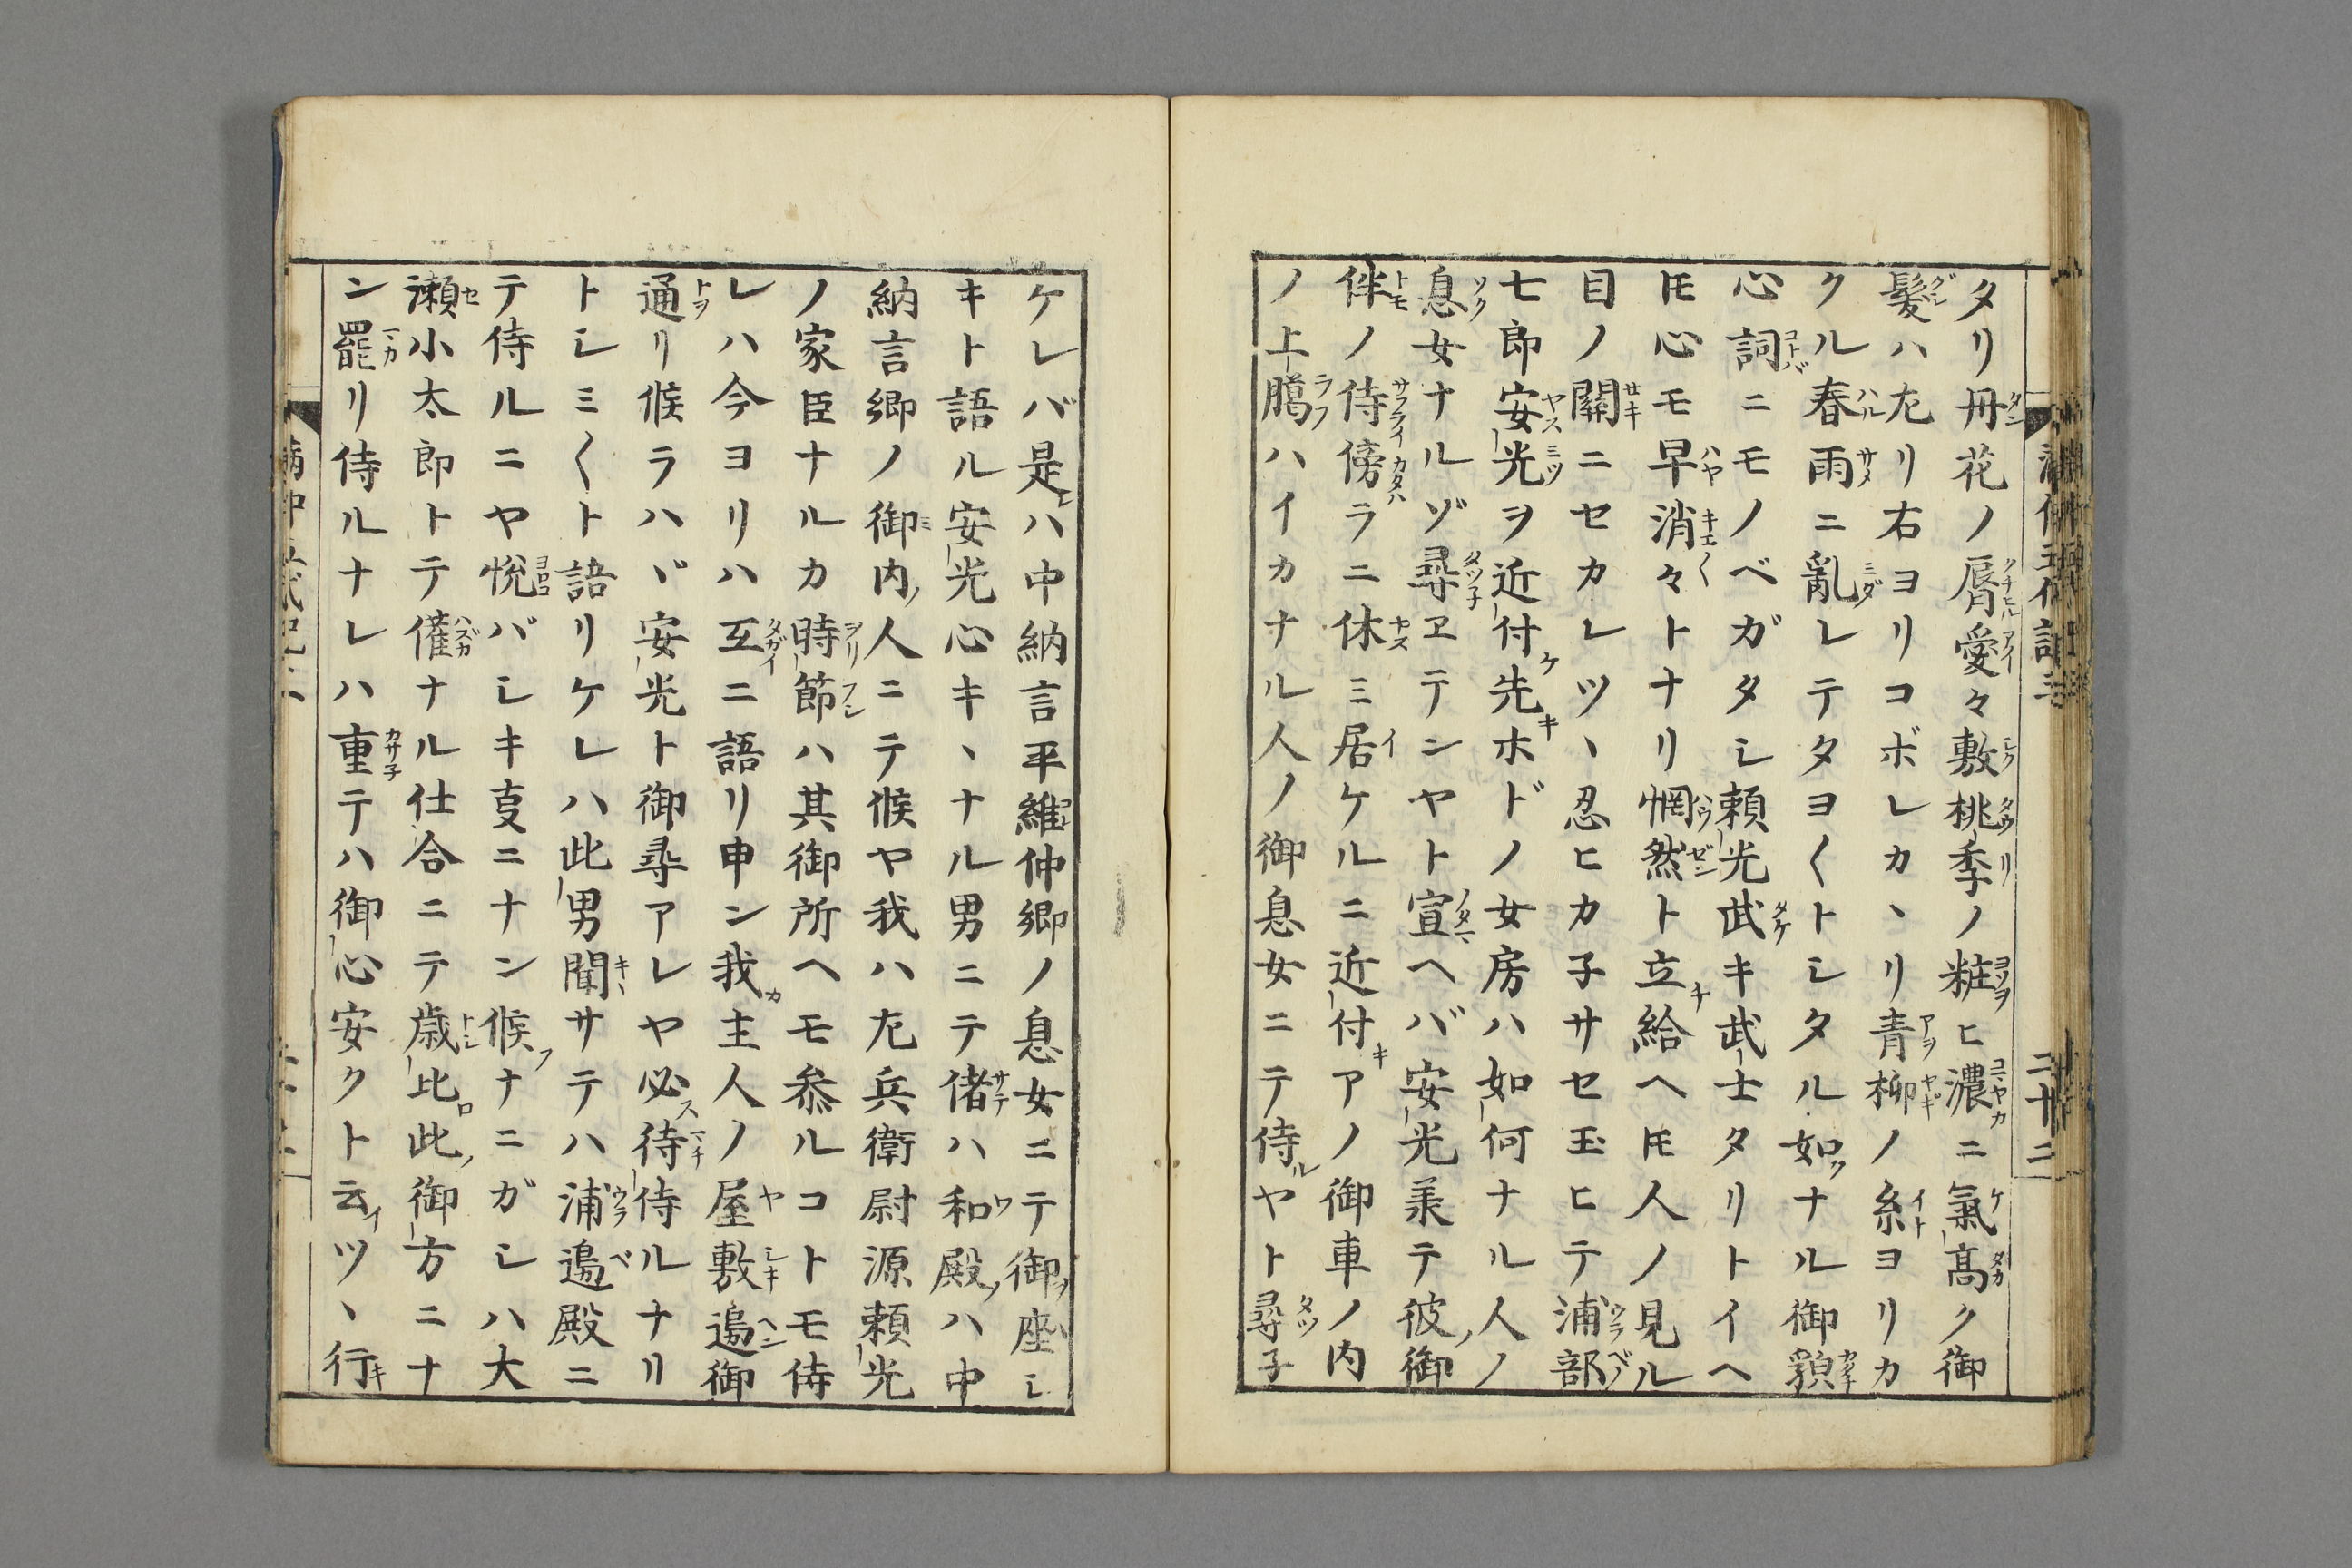 タリ丹花ノ脣愛々敷桃季ノ粧ヒ濃ニ氣髙ク御
髮ハ左リ右ヨリコボレカヽリ青柳ノ糸ヨリカ
クル春雨ニ亂レテタヨ〱トシタル如ナル御㒵
心詞ニモノベガタシ頼光武キ武士タリトイヘ
𪜈心モ早消々トナリ惘然ト立給ヘ𪜈人ノ見ル
目ノ關ニセカレツヽ忍ヒカ子サセ玉ヒテ浦部
七郎安光ヲ近付先ホドノ女房ハ如何ナル人ノ
息女ナルゾ尋ヱテンヤト宣ヘバ安光羕テ彼御
伴ノ侍傍ラニ休ミ居ケルニ近付アノ御車ノ内
ノ上﨟ハイカナル人ノ御息女ニテ侍ルヤト尋子
二十二
ケレバ是ハ中納言平維仲卿ノ息女ニテ御座シ
キト語ル安光心キヽナル男ニテ偖ハ和殿ハ中
納言卿ノ御内人ニテ候ヤ我ハ左兵衛尉源頼光
ノ家臣ナルカ時節ハ其御所ヘモ叅ルコトモ侍
レハ今ヨリハ互ニ語リ申ン我主人ノ屋敷邉御
通リ候ラハヾ安光ト御尋アレヤ必待侍ルナリ
トシミ〱ト語リケレハ此男聞サテハ浦邉殿ニ
テ侍ルニヤ悦バシキ㕝ニナン候ナニガシハ大
瀬小太郎トテ僅ナル仕合ニテ歳比此御方ニナ
ン罷リ侍ルナレハ重テハ御心安クト云ツヽ行